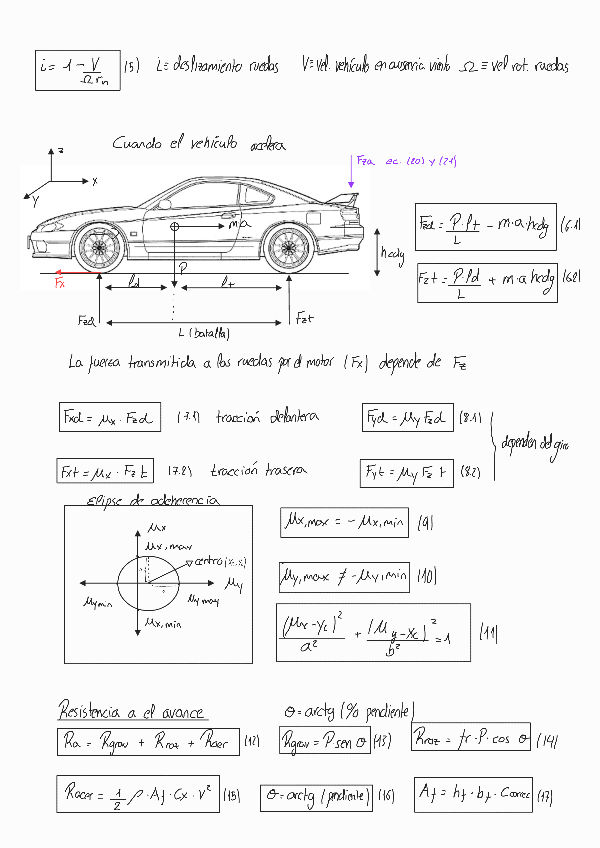 i = 1 - V/Ωrn (5) i = deslizamiento ruedas V = vel. vehículo en ausencia viento Ω ≡ vel rot. ruedas
Cuando el vehículo acelera
z
x
y
Fza ec. (20) y (21)
m·a
hcdg
Fx
ld
P
lt
Fzd
L (batalla)
Fzt
Fzd = P·lt/L - m·a·hcdg (6.1)
Fzt = P·ld/L + m·a·hcdg (6.2)
La fuerza transmitida a las ruedas por el motor (Fx) depende de Fz
Fxd = μx · Fzd (7.1) tracción delantera Fyd = μy Fzd (8.1)
dependen del giro
Fxt = μx · Fzt (7.2) tracción trasera Fyt = μy Fzt (8.2)
Elipse de adeherencia
μx
μx,max
centro (xc,xc)
μy
μy min
μy max
μx,min
μx,max = - μx,min (9)
μy,max ≠ - μy,min (10)
(μx-yc)²/a² + (μy-xc)²/b² = 1 (11)
Resistencia a el avance θ = arctg (% pendiente)
Ra = Rgrav + Rroz + Raer (12) Rgrav = P sen θ (13) Rroz = fr · P · cos θ (14)
Raer = 1/2 ρ · Af · Cx · V² (15) θ = arctg (pendiente) (16) Af = hf · bf · Ccorrec (17)